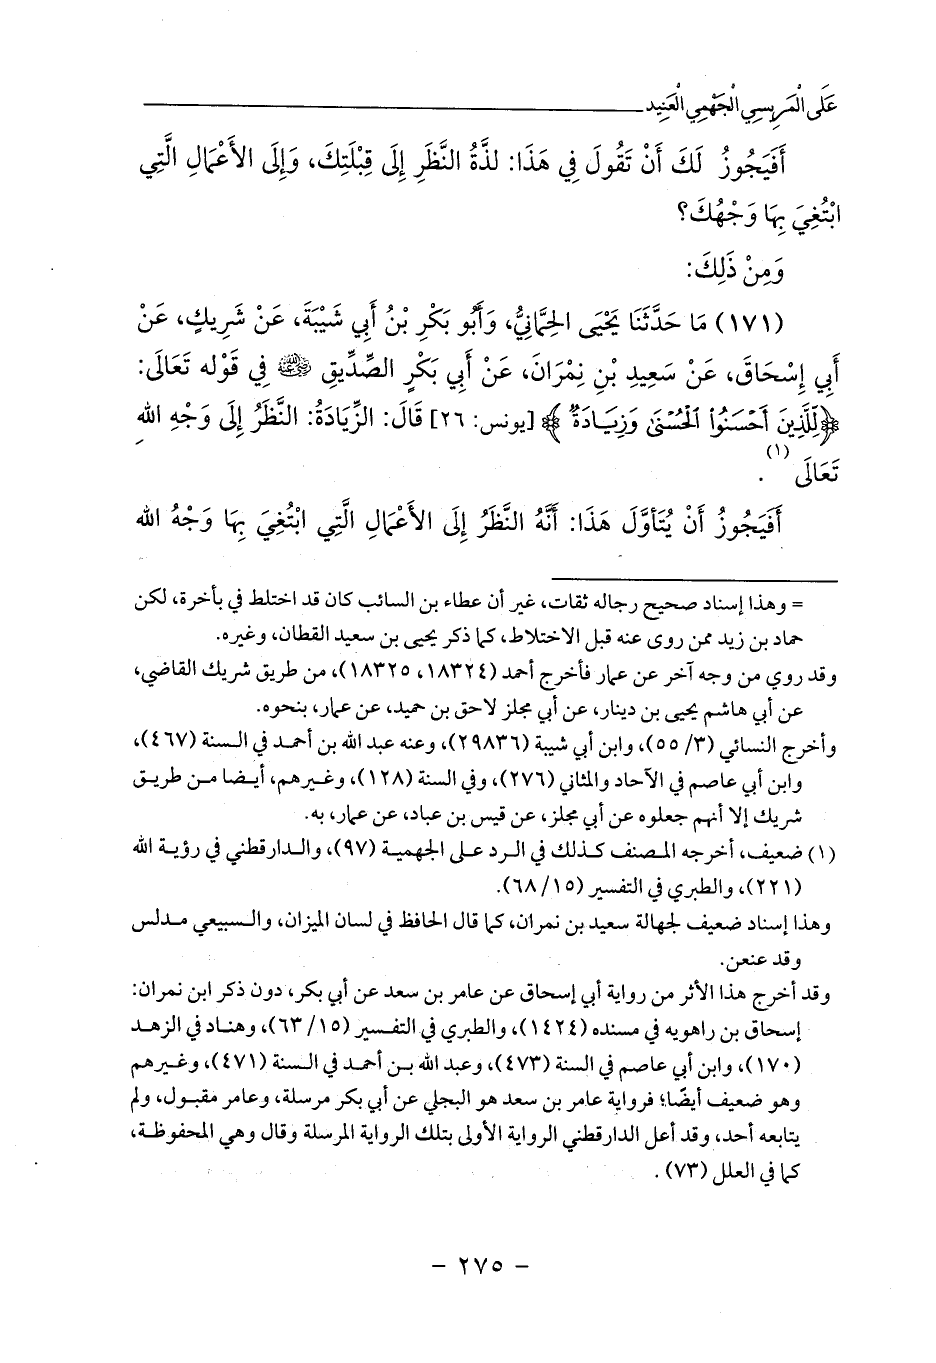 عَلَى الْمَرِيسِي الْجَهْمِي الْعَنِيدِ
أَفَيَجُوزُ لَكَ أَنْ تَقُولَ فِي هَذَا: لذَّةُ النَّظَرِ إِلَى قِبْلَتِكَ، وَإِلَى الأَعْمَالِ الَّتِي
ابْتُغِيَ بِهَا وَجْهُكَ؟
وَمِنْ ذَلِكَ:
(١٧١) مَا حَدَّثَنَا يَحْيَى الحِمَّانِيُّ، وَأَبُو بَكْرِ بْنُ أَبِي شَيْبَةَ، عَنْ شَرِيكٍ، عَنْ
أَبِي إِسْحَاقَ، عَنْ سَعِيدِ بْنِ نِمْرَانَ، عَنْ أَبِي بَكْرٍ الصِّدِّيقِ ﵁ فِي قَوْله تَعَالَى:
﴿لِّلَّذِينَ أَحْسَنُوا۟ الْحُسْنَىٰ وَزِيَادَةٌ﴾ [يونس: ٢٦] قَالَ: الزِّيَادَةُ: النَّظَرُ إِلَى وَجْهِ الله
تَعَالَى (١).
أَفَيَجُوزُ أَنْ يُتَأوَّلَ هَذَا: أَنَّهُ النَّظَرُ إِلَى الأَعْمَالِ الَّتِي ابْتُغِيَ بِهَا وَجْهُ الله
= وهذا إسناد صحيح رجاله ثقات، غير أن عطاء بن السائب كان قد اختلط في بأخرة، لكن
حماد بن زيد ممن روى عنه قبل الاختلاط، كما ذكر يحيى بن سعيد القطان، وغيره.
وقد روي من وجه آخر عن عمار فأخرج أحمد (١٨٣٢٤، ١٨٣٢٥)، من طريق شريك القاضي،
عن أبي هاشم يحيى بن دينار، عن أبي مجلز لاحق بن حميد، عن عمار، بنحوه.
وأخرج النسائي (٣/ ٥٥)، وابن أبي شيبة (٢٩٨٣٦)، وعنه عبد الله بن أحمد في السنة (٤٦٧)،
وابن أبي عاصم في الآحاد والمثاني (٢٧٦)، وفي السنة (١٢٨)، وغيرهم، أيضا من طريق
شريك إلا أنهم جعلوه عن أبي مجلز، عن قيس بن عباد، عن عمار، به.
(١) ضعيف، أخرجه المصنف كذلك في الرد على الجهمية (٩٧)، والدارقطني في رؤية الله
(٢٢١)، والطبري في التفسير (١٥/ ٦٨).
وهذا إسناد ضعيف لجهالة سعيد بن نمران، كما قال الحافظ في لسان الميزان، والسبيعي مدلس
وقد عنعن.
وقد أخرج هذا الأثر من رواية أبي إسحاق عن عامر بن سعد عن أبي بكر، دون ذكر ابن نمران:
إسحاق بن راهويه في مسنده (١٤٢٤)، والطبري في التفسير (١٥/ ٦٣)، وهناد في الزهد
(١٧٠)، وابن أبي عاصم في السنة (٤٧٣)، وعبد الله بن أحمد في السنة (٤٧١)، وغيرهم
وهو ضعيف أيضًا؛ فرواية عامر بن سعد هو البجلي عن أبي بكر مرسلة، وعامر مقبول، ولم
يتابعه أحد، وقد أعل الدارقطني الرواية الأولى بتلك الرواية المرسلة وقال وهي المحفوظة،
كما في العلل (٧٣).
- ٢٧٥ -